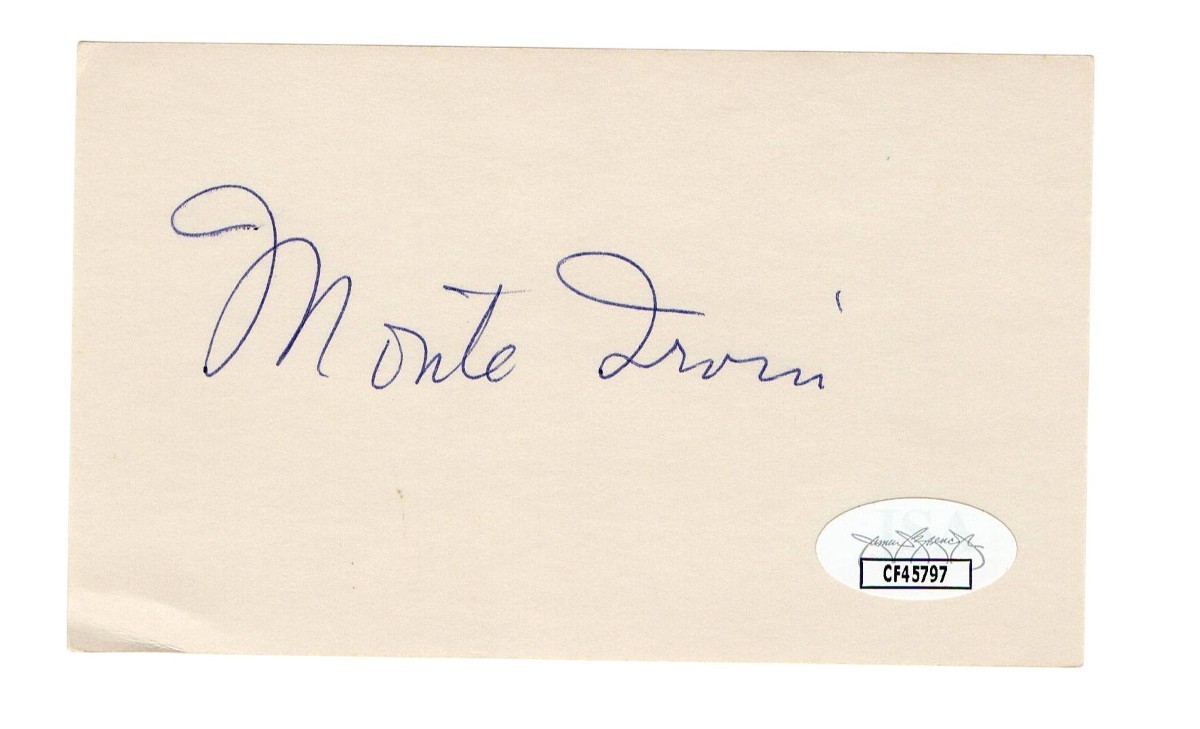 Monte Irvin
CF45797